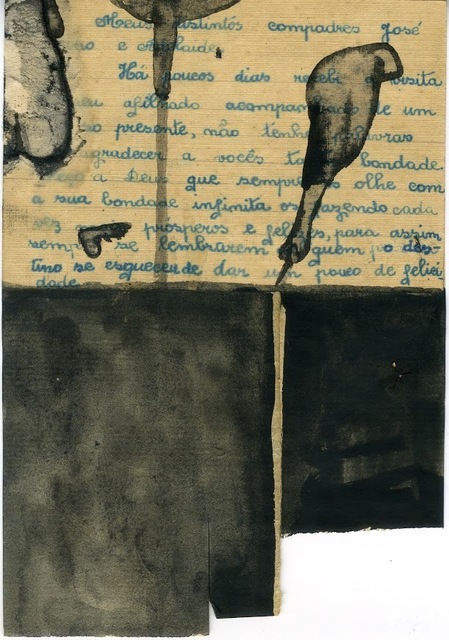 Meus distintos compadres José
e Adelaide
Há poucos dias recebi a visita
afilhado acompanhado de um
presente, não tenho palavras
agradecer a vocês bondade.
a Deus que sempre os olhe com
a sua bondade infinita os fazendo cada
vez prósperos e felizes, para assim
sempre se lembrarem quem o des-
tino se esqueceu de dar um pouco de felici
dade